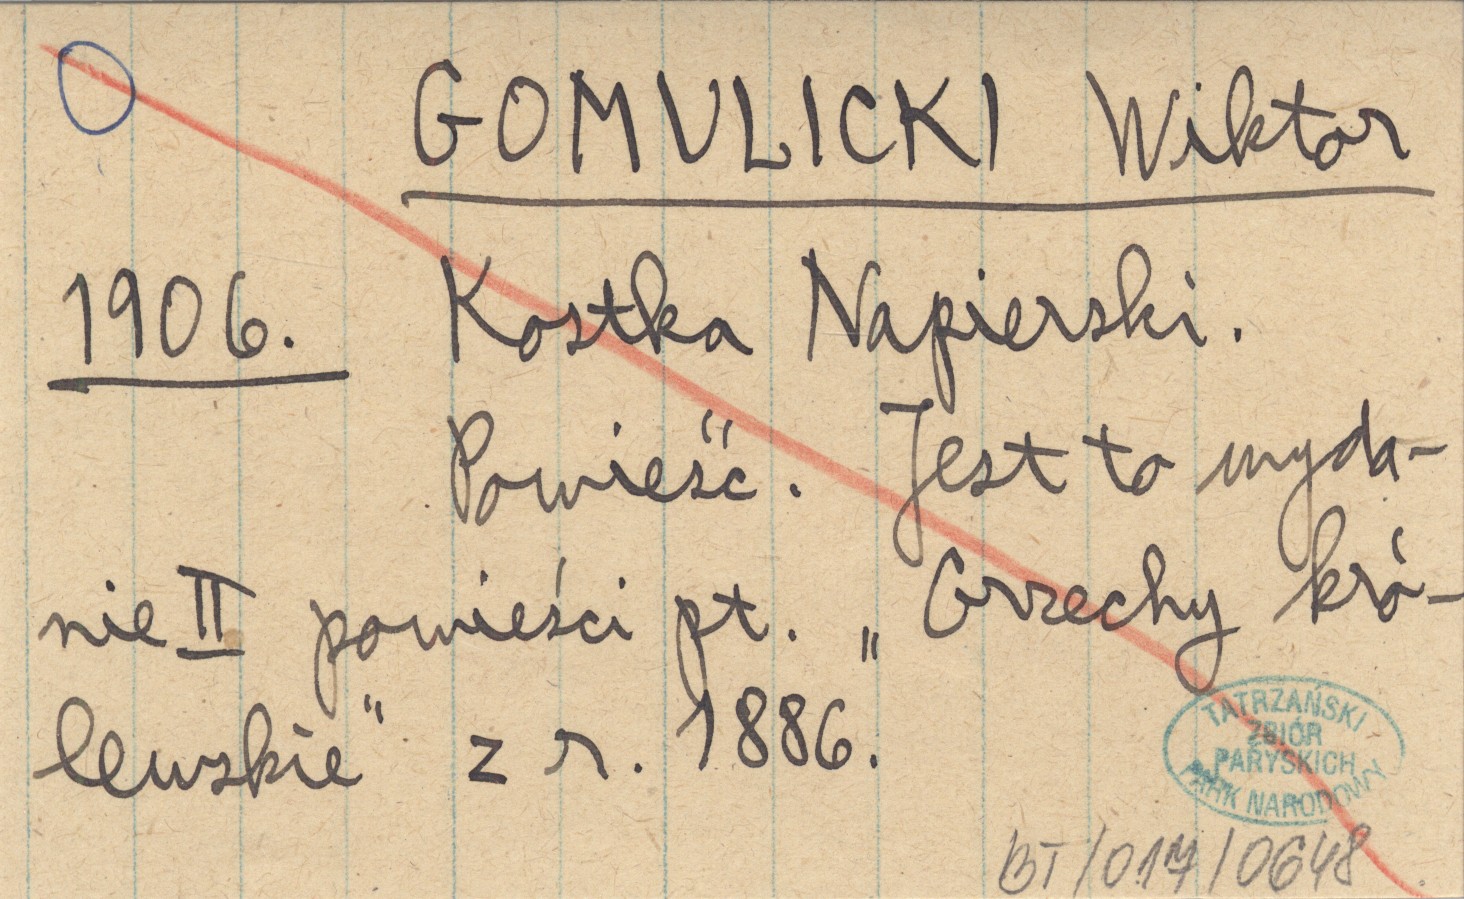 GOMULICKI Wiktor
1906. Kostka Napierski.
Powieść. Jest to wyda-
nie II powieści pt. „Grzechy kró-
lewskie" z r. 1886.
TATRZAŃSKI
ZBIÓR
PARYSKICH
PARK NARODOWY
BT/017/0648